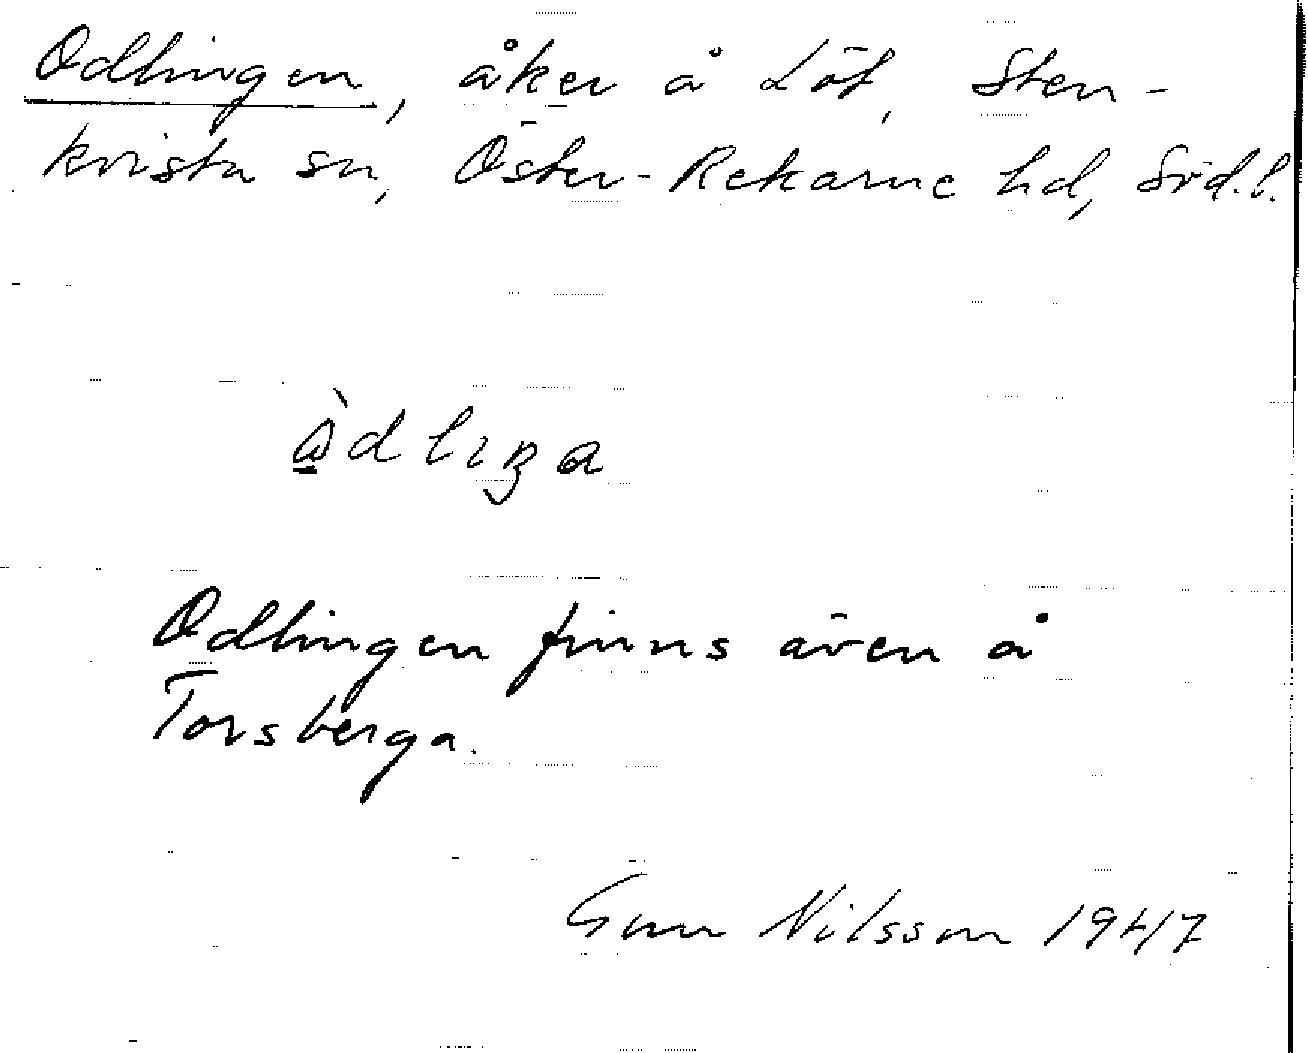 Odlingen, åker å Löt, Sten-
kvista sn, Öster-Rekarne hd, Söd.l.
Odlingen finns även å
Torsberga.
Gun Nilsson 1947